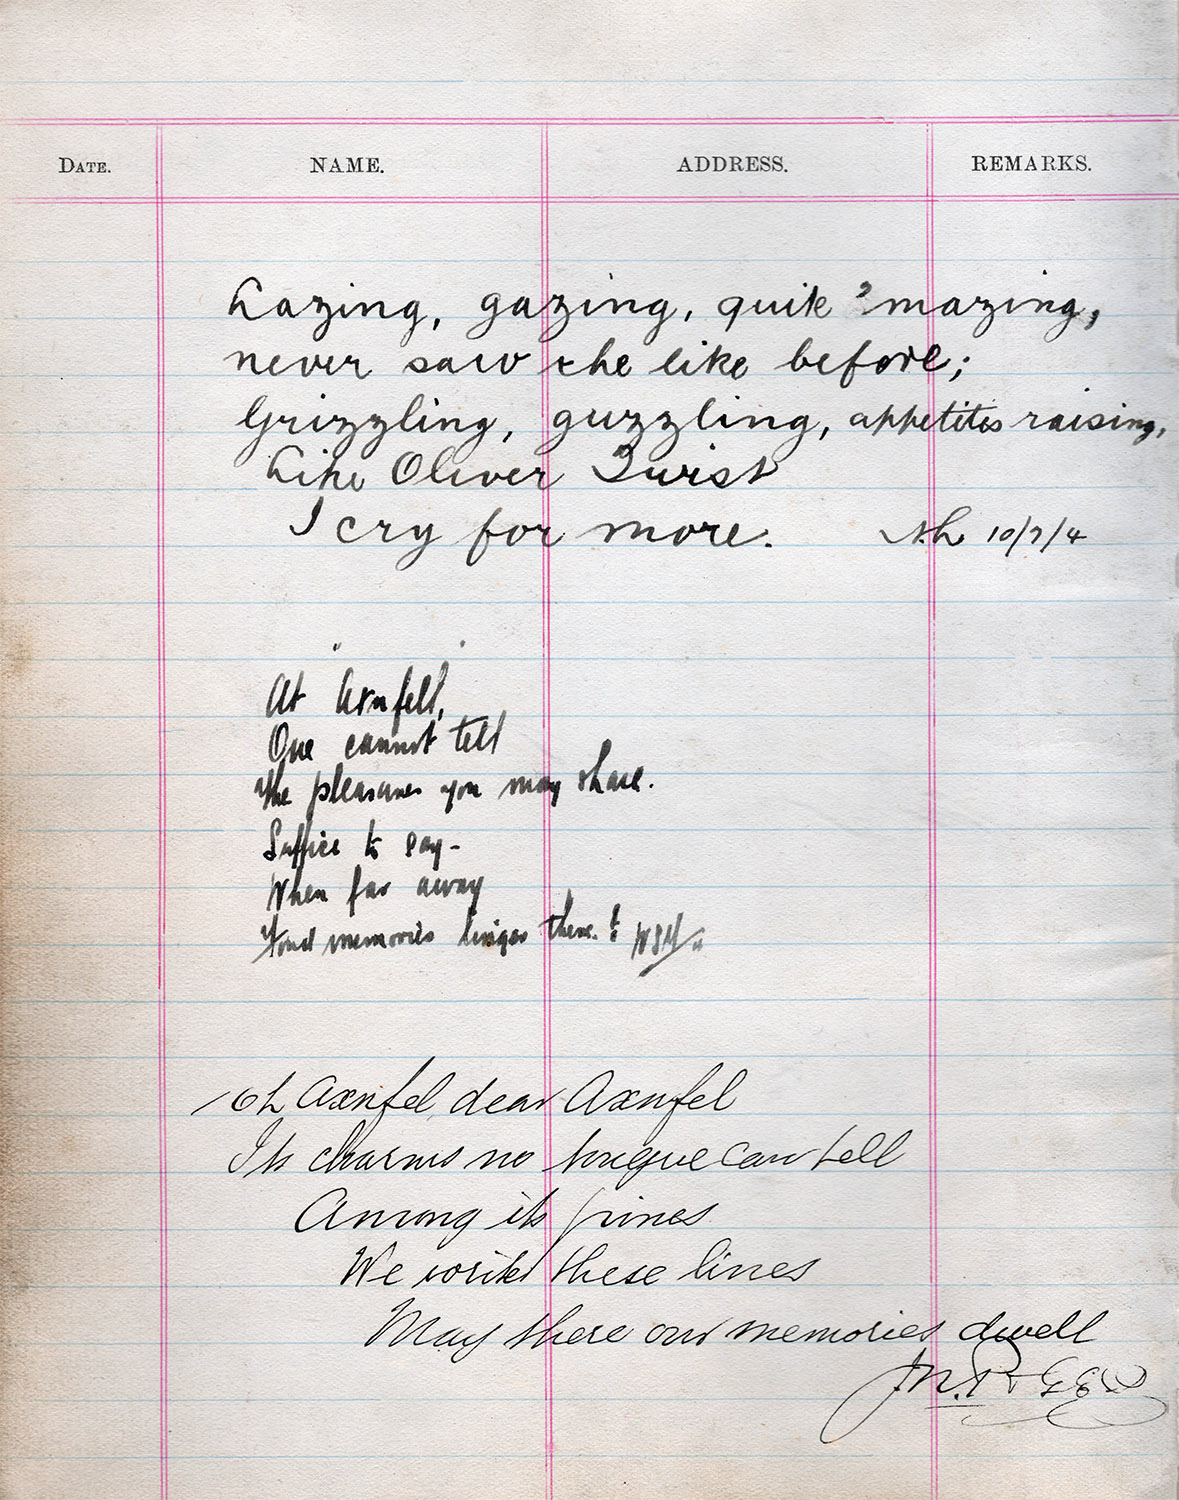 DATE. NAME. ADDRESS. REMARKS.
Lazing, gazing, quite 'mazing,
never saw the like before;
Grizzling, guzzling, appetites raising,
Like Oliver Twist
I cry for more. 10/7/4
At Axnfell,
One cannot tell
The pleasures you may share.
Suffice to say-
When far away
Fond memories linger there.!
Oh Axnfel, dear Axnfel
Its charms no tongue can tell
Among its pines
We write these lines
May there our memories dwell